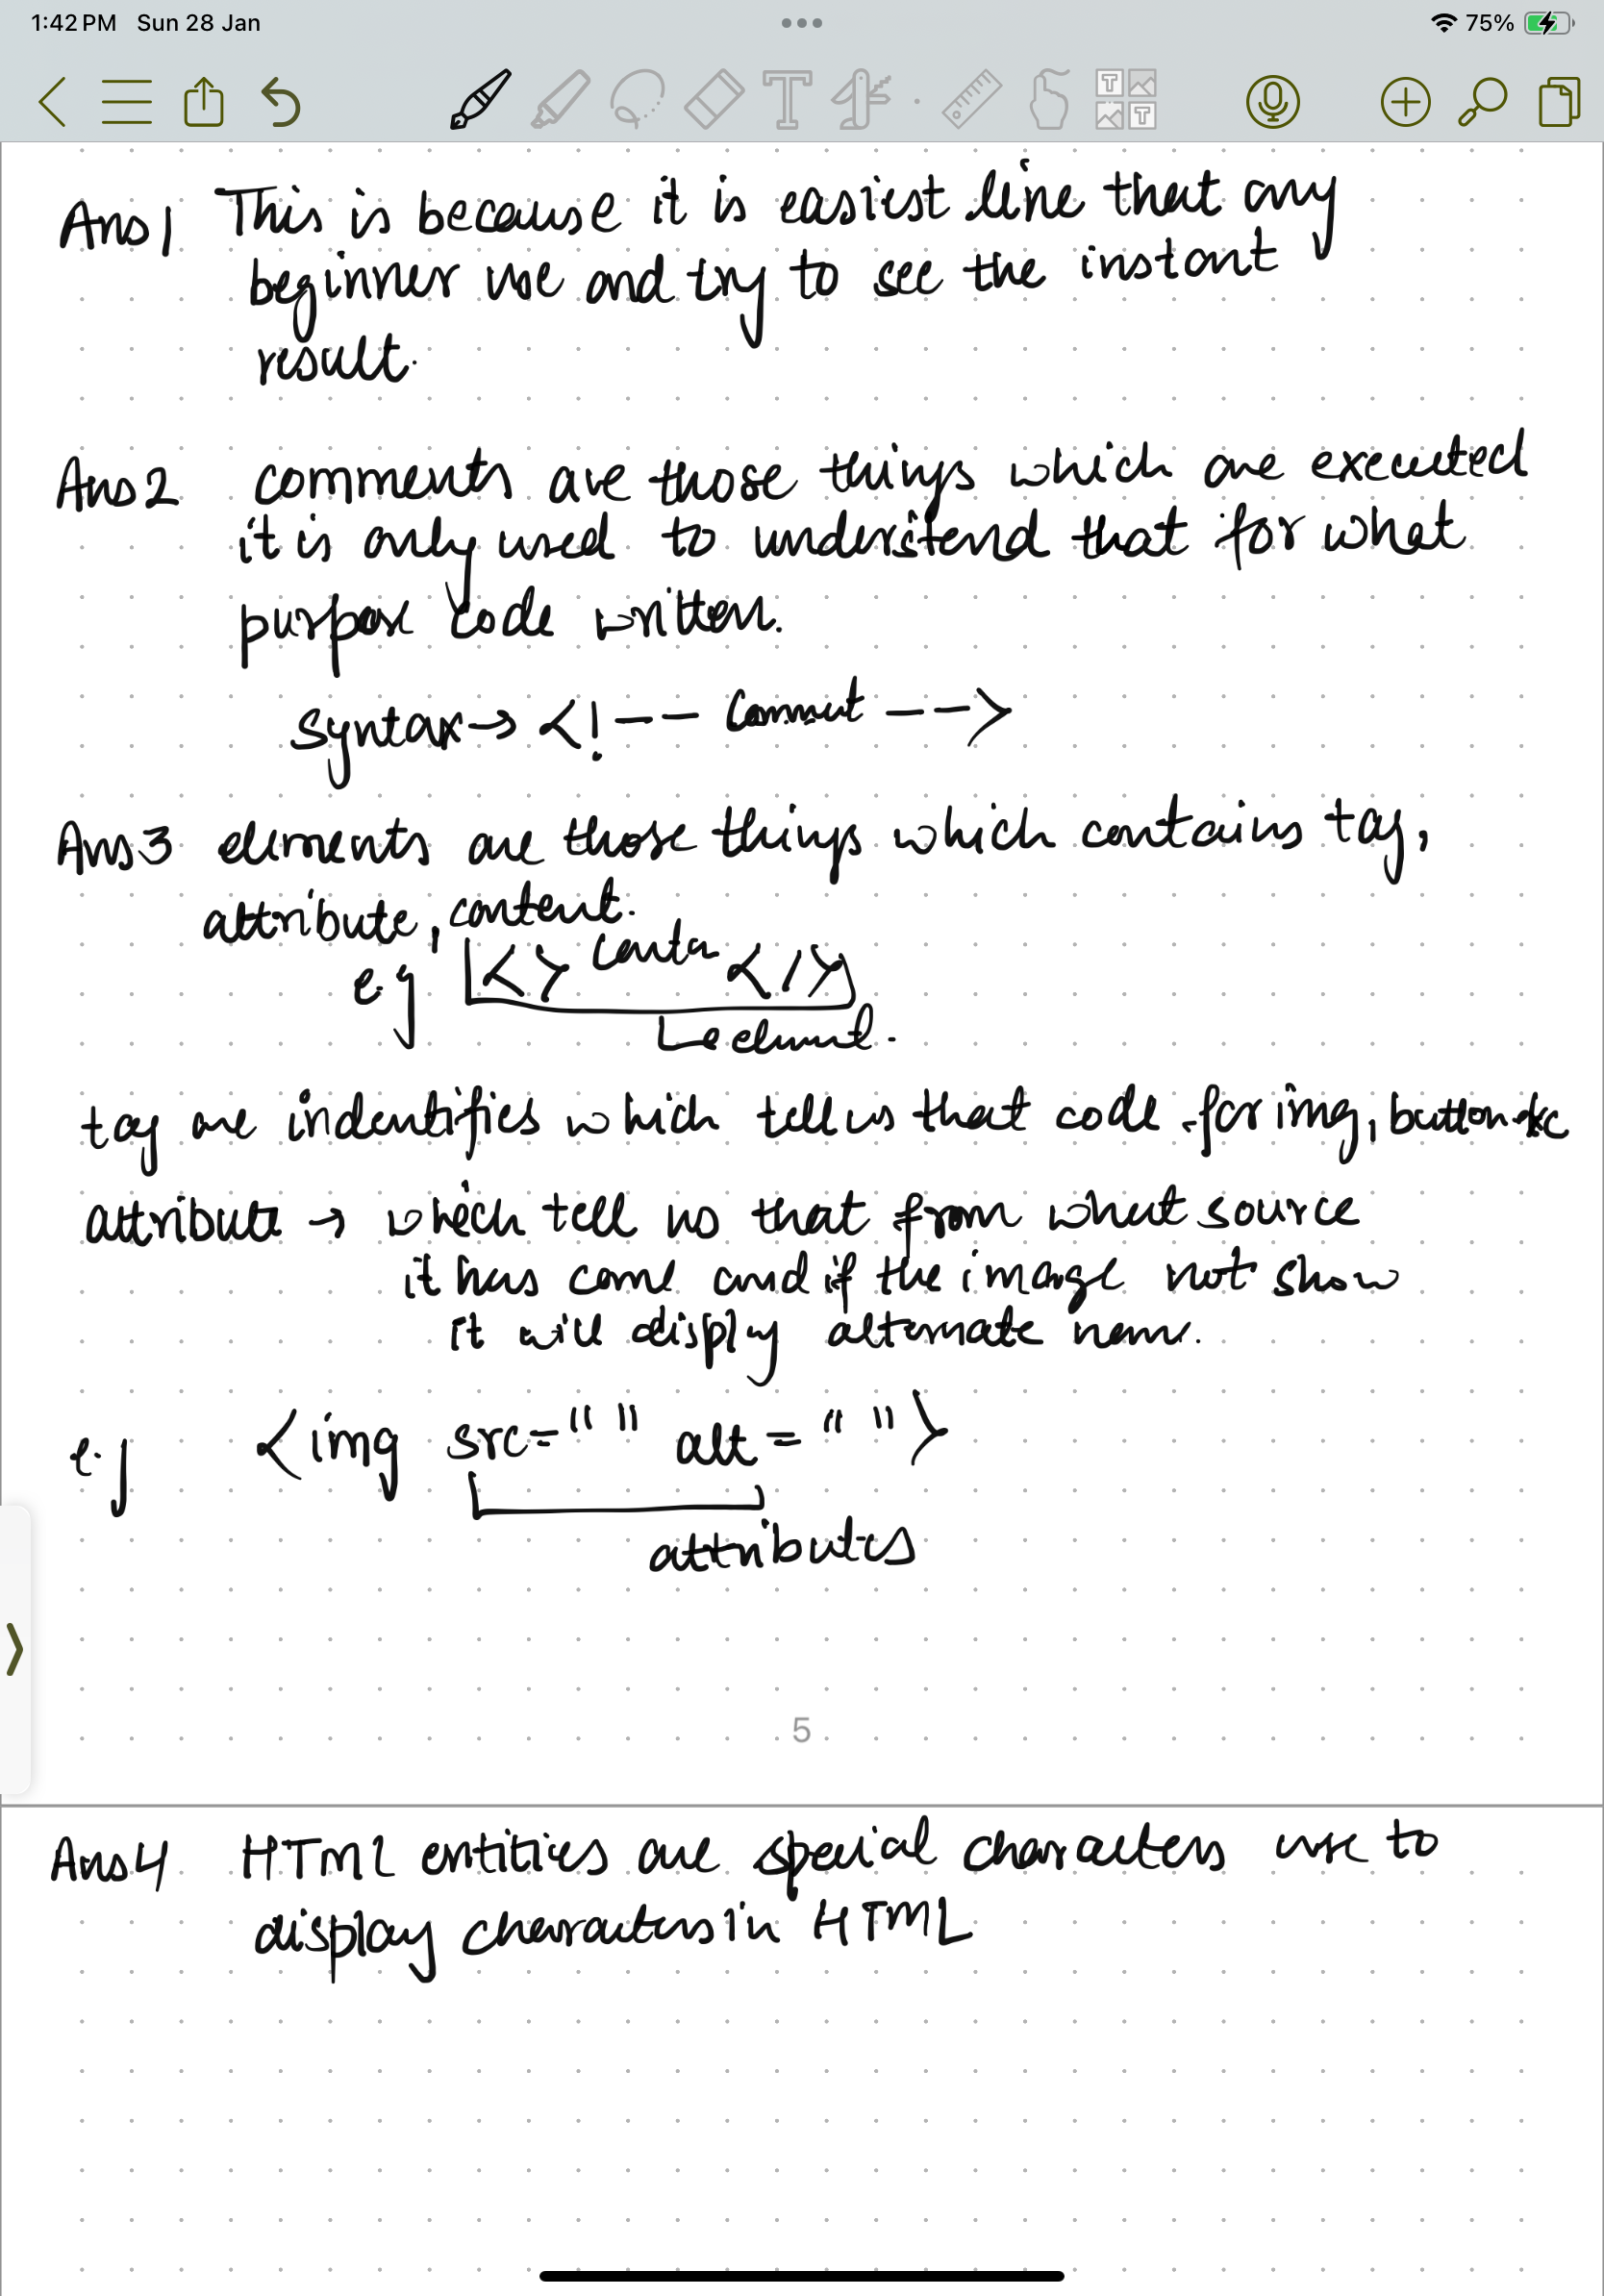 1:42 PM Sun 28 Jan
75%
Ans 1 This is because it is easiest line that any
beginner use and try to see the instant
result.
Ans 2 comments are those things which are executed
it is only used to understand that for what
purpose code written.
syntax → <! -- Comment -- >
Ans 3 elements are those things which contains tag,
attribute, content.
e.g <> </>
element.
tag are indentifies which tell us that code for img, button etc
attribute → which tell us that from what source
it has come and if the image not show
it will display alternate name.
e.g <img src=" " alt = " ">
attributes
5
Ans 4 HTML entities are special characters use to
display characters in HTML